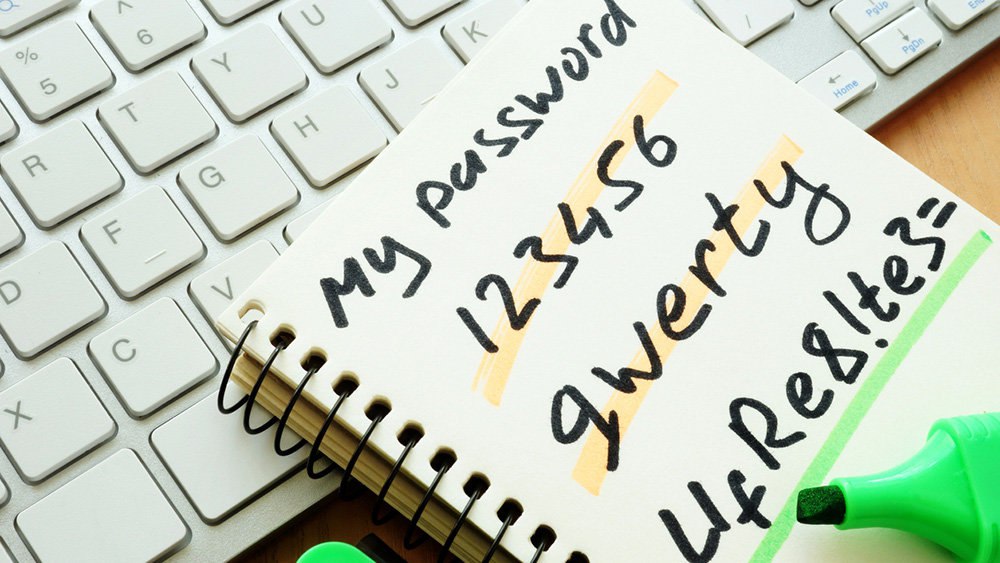 My password
123456
qwerty
UfRe8!te3=
%
5
^
6
R T Y U
D F G H J K
X C V
PgUp
PgDn
Home